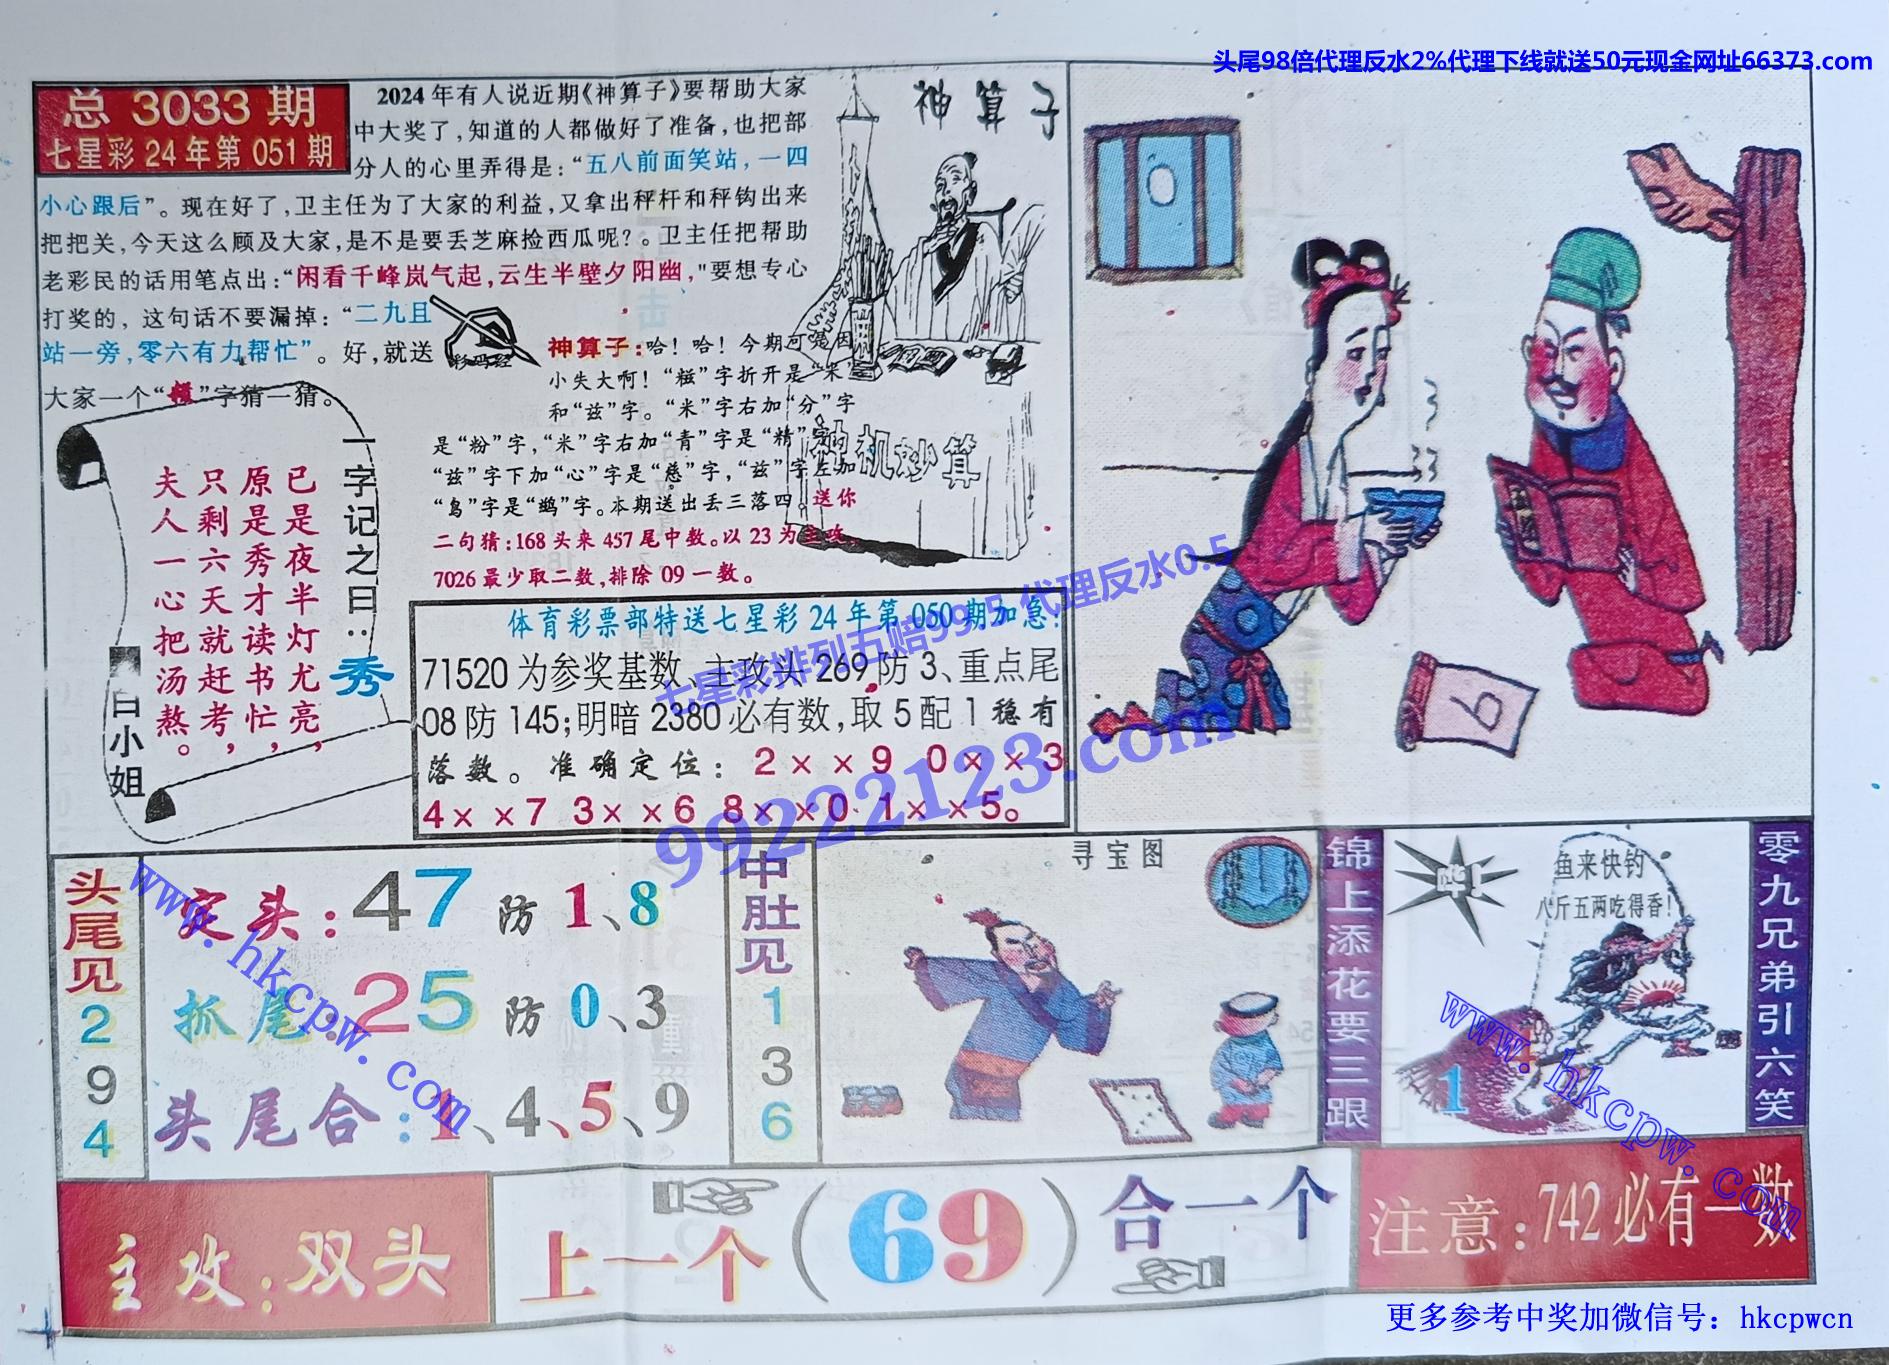 头尾98倍代理反水2%代理下线就送50元现金网址66373.com
总 3033 期
七星彩 24 年第 051 期
2024 年有人说近期《神算子》要帮助大家
中大奖了，知道的人都做好了准备，也把部
分人的心里弄得是：“五八前面笑站，一四
小心跟后”。现在好了，卫主任为了大家的利益，又拿出秤杆和秤钩出来
把把关，今天这么顾及大家，是不是要丢芝麻捡西瓜呢？。卫主任把帮助
老彩民的话用笔点出：“闲看千峰岚气起，云生半壁夕阳幽，"要想专心
打奖的，这句话不要漏掉：“二九且
站一旁，零六有力帮忙”。好，就送
大家一个“糍”字猜一猜。
神算子
神算子：哈！哈！今期可晃因
小失大啊！“糍”字折开是“米”
和“兹”字。“米”字右加“分”字
是“粉”字，“米”字右加“青”字是“精”字
“兹”字下加“心”字是“慈”字，“兹”字左加
“鸟”字是“鹚”字。本期送出丢三落四。送你
二句猜：168 头来 457 尾中数。以 23 为主攻，
7026 最少取二数，排除 09 一数。
神机妙算
一字记之曰：秀
已是夜半灯尤亮，
原是秀才读书忙，
只剩六天就赶考，
夫人一心把汤熬。
白小姐
体育彩票部特送七星彩 24 年第 050 期加急！
71520 为参奖基数、主攻头 269 防 3、重点尾
08 防 145；明暗 2380 必有数，取 5 配 1 稳有
落数。准确定位：2××9 0××3
4××7 3××6 8××0 1××5。
0
3
33
6
七星彩排列五赔99.5 代理反水0.5
99222123.com
头尾见
2
9
4
定头：47 防 1、8
抓尾：25 防 0、3
头尾合：1、4、5、9
中肚见
1
3
6
寻宝图
锦上添花要三跟
哗！
鱼来快钓
八斤五两吃得香！
1
零九兄弟引六笑
www.hkcpw.com
www.hkcpw.com
主攻：双头
上一个（69）合一个
注意：742 必有一数
更多参考中奖加微信号：hkcpwcn